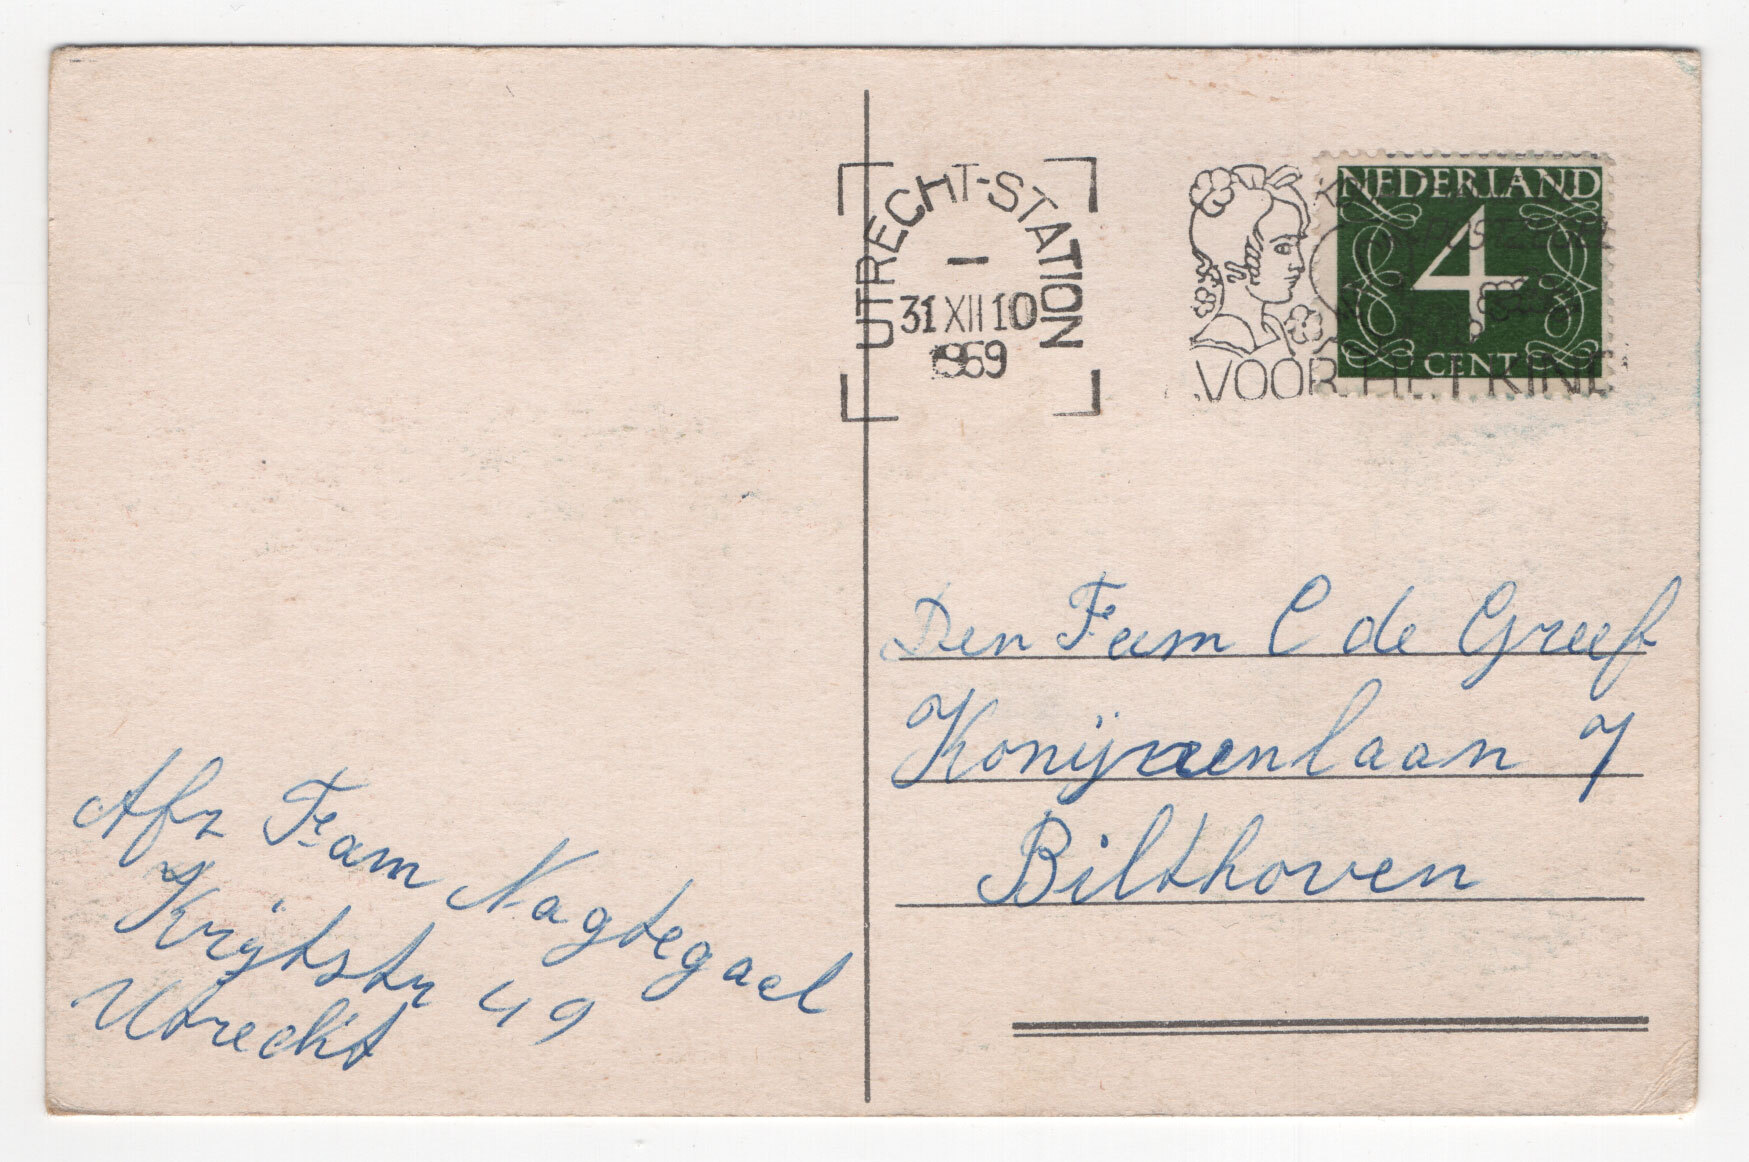 UTRECHT-STATION
31 XII 10
1969
NEDERLAND
4
CENT
VOOR HET KIND
Den Fam C de Greef
Konijnenlaan 7
Bilthoven
Afz Fam Nagtegaal
Krijtstr 49
Utrecht